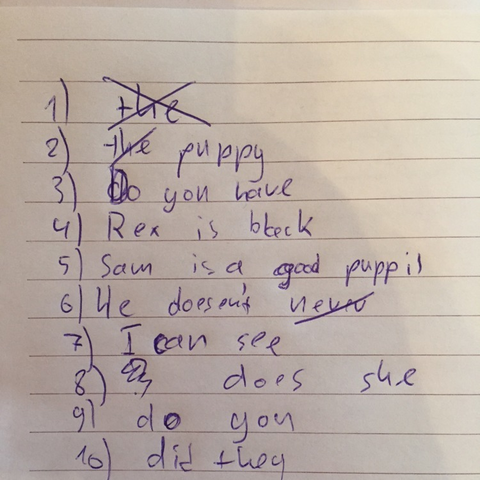 1) the
2) the puppy
3) Do you have
4) Rex is bleck
5) Sam is a good puppil
6) He doesen't never
7) I can see
8) does she
9) do you
10) did they